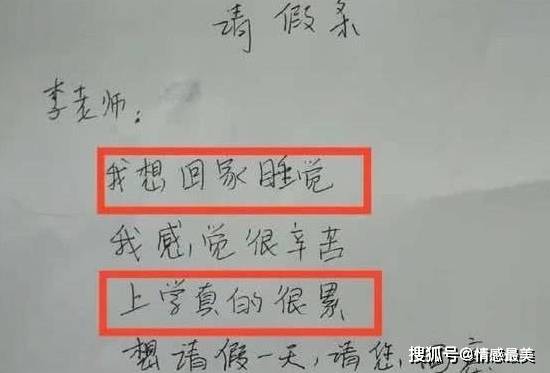 请假条
李老师：
我想回家睡觉
我感觉很辛苦
上学真的很累
想请假一天，请您
搜狐号@情感最美